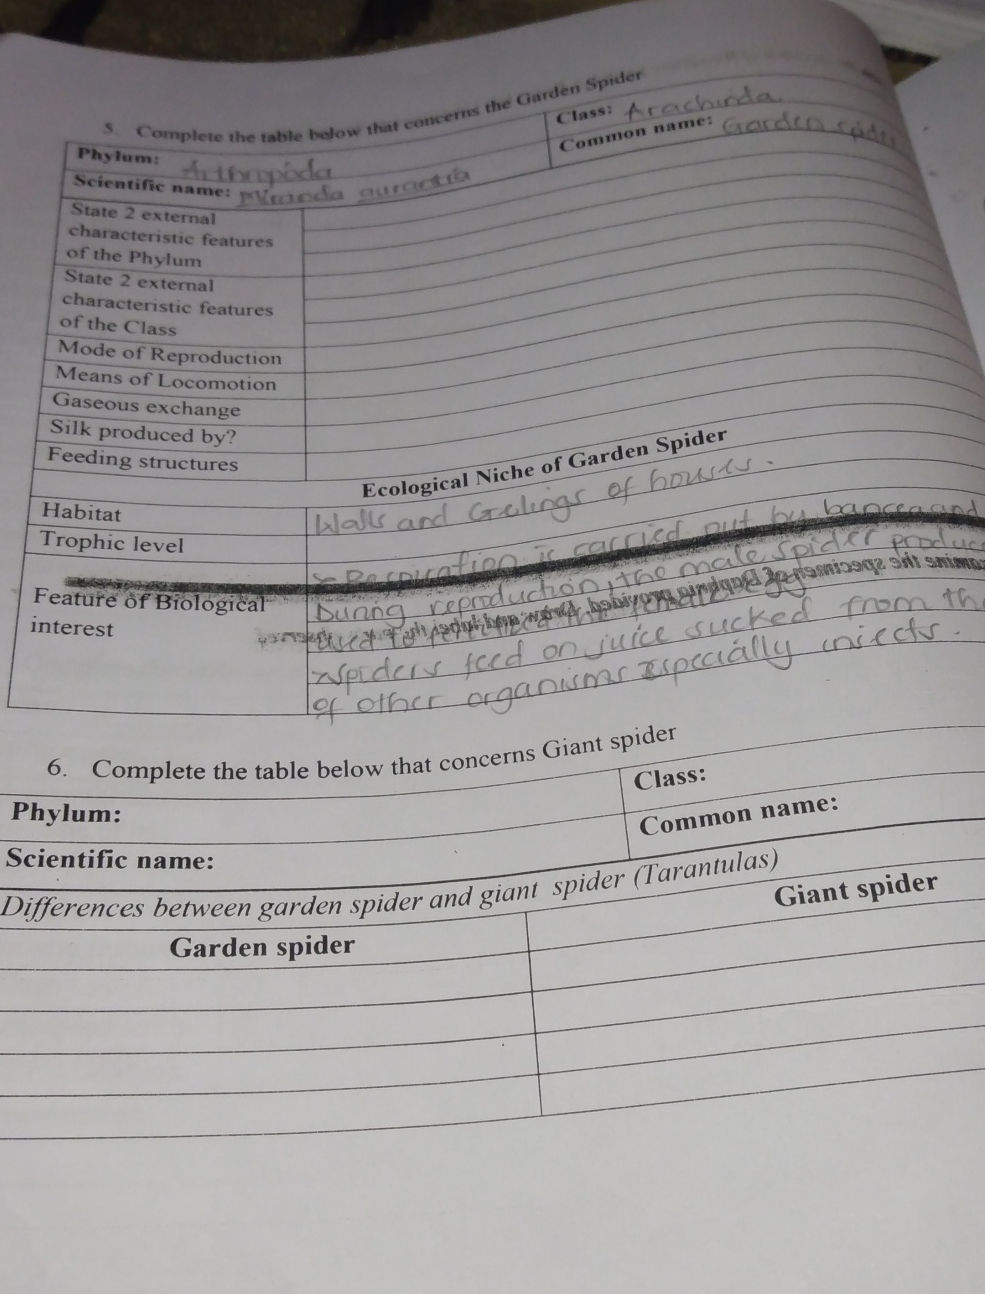 5. Complete the table below that concerns the Garden Spider
Phylum: Arthropoda
Class: Arachinda
Scientific name: aurantia
Common name: Garden spider
State 2 external
characteristic features
of the Phylum
State 2 external
characteristic features
of the Class
Mode of Reproduction
Means of Locomotion
Gaseous exchange
Silk produced by?
Feeding structures
Ecological Niche of Garden Spider
Habitat
Walls and Ceilings of houses.
Trophic level
Respiration is carried out by and
Feature of Biological
interest
During reproduction, the male spider produc
used to
spiders feed on juice sucked from th
of other organisms especially insects.
6. Complete the table below that concerns Giant spider
Phylum:
Class:
Scientific name:
Common name:
Differences between garden spider and giant spider (Tarantulas)
Garden spider
Giant spider